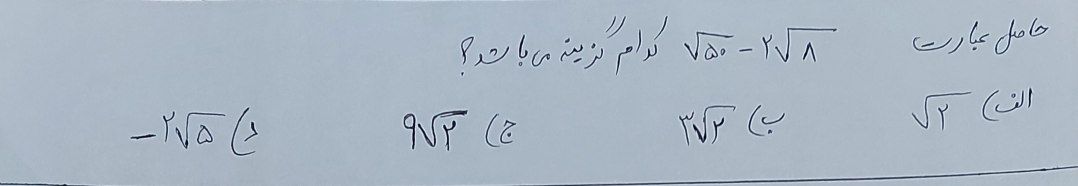 حاصل عبارت √۵۰ - ۲√۸ کدام گزینه می باشد؟
الف) √۲ ب) ۳√۲ ج) ۹√۲ د) -۲√۵